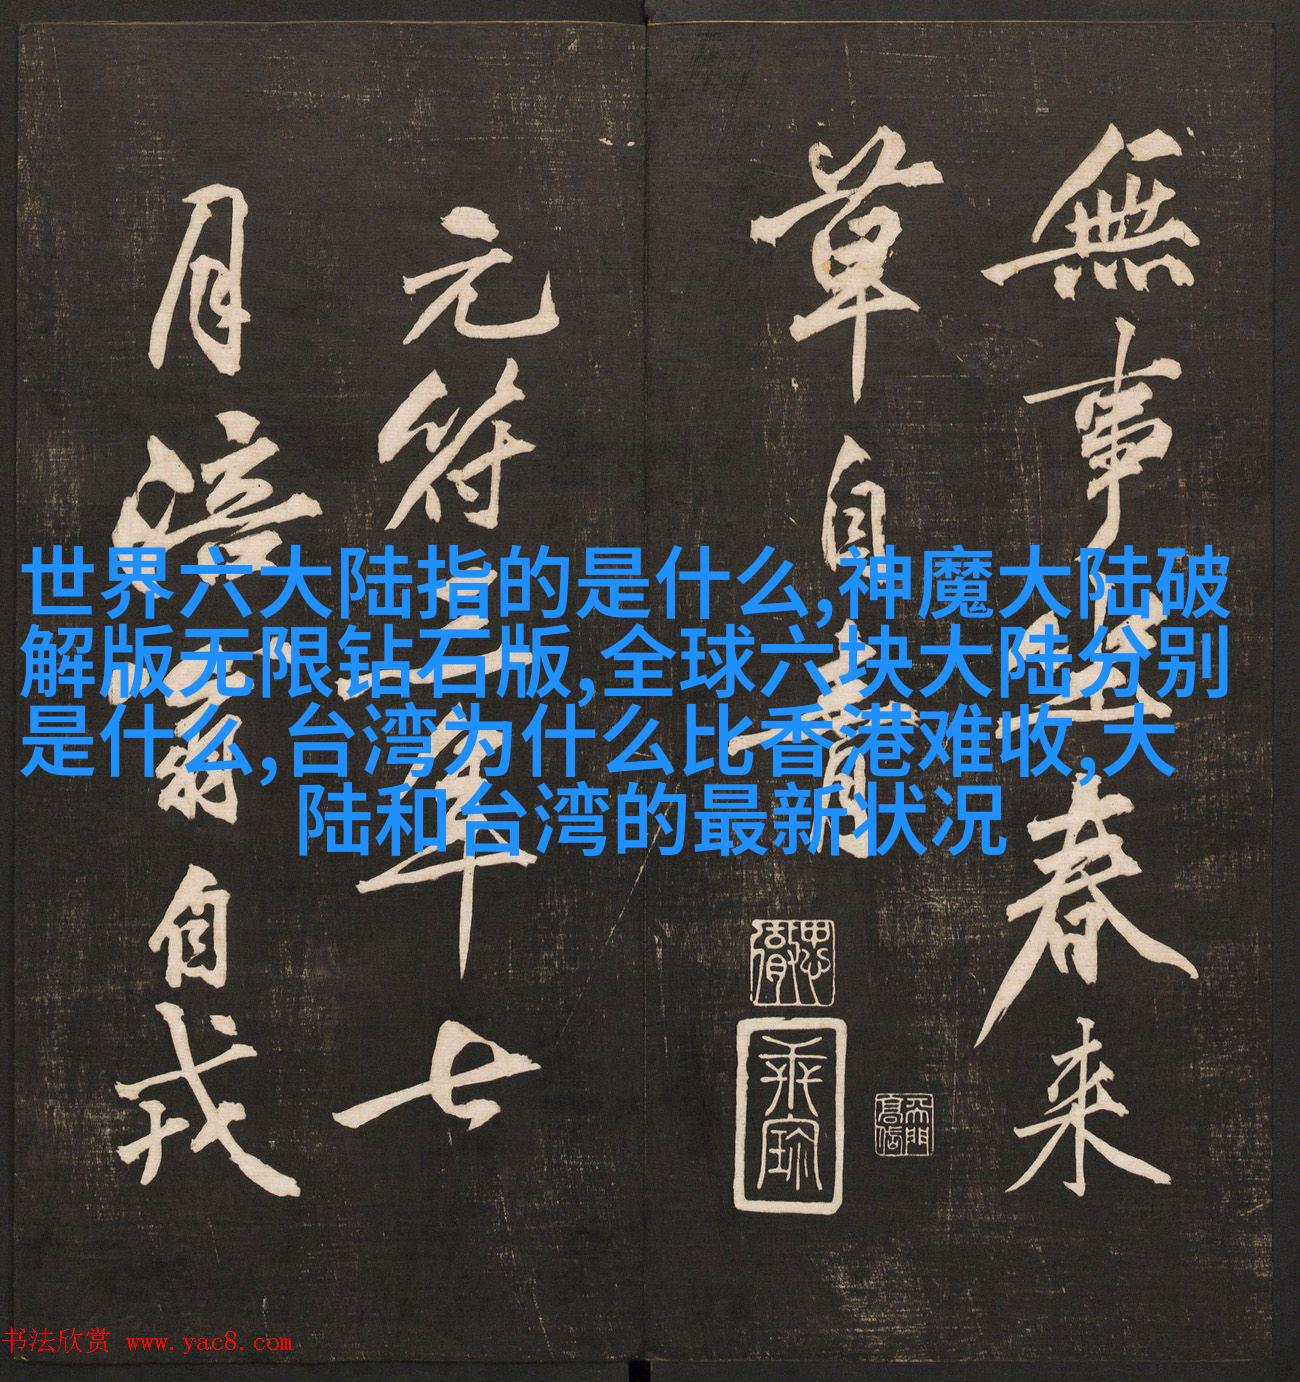 無事坐春来
草自青
元符三年七
月涪翁自戎
世界六大陆指的是什么,神魔大陆破
解版无限钻石版,全球六块大陆分别
是什么,台湾为什么比香港难收,大
陆和台湾的最新状况
书法欣赏 www.yac8.com